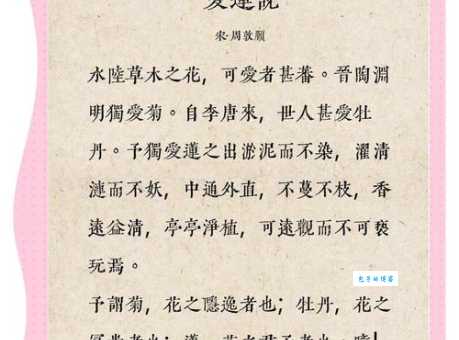 愛蓮說
宋·周敦頤
水陸草木之花，可愛者甚蕃。晉陶淵
明獨愛菊。自李唐來，世人甚愛牡
丹。予獨愛蓮之出淤泥而不染，濯清
漣而不妖，中通外直，不蔓不枝，香
遠益清，亭亭淨植，可遠觀而不可褻
玩焉。
予謂菊，花之隱逸者也；牡丹，花之
富貴者也；蓮，花之君子者也。噫！